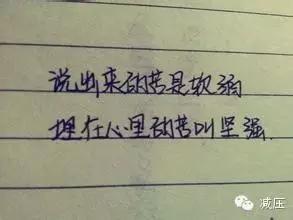 说出来的苦是软弱
埋在心里的苦叫坚强
减压